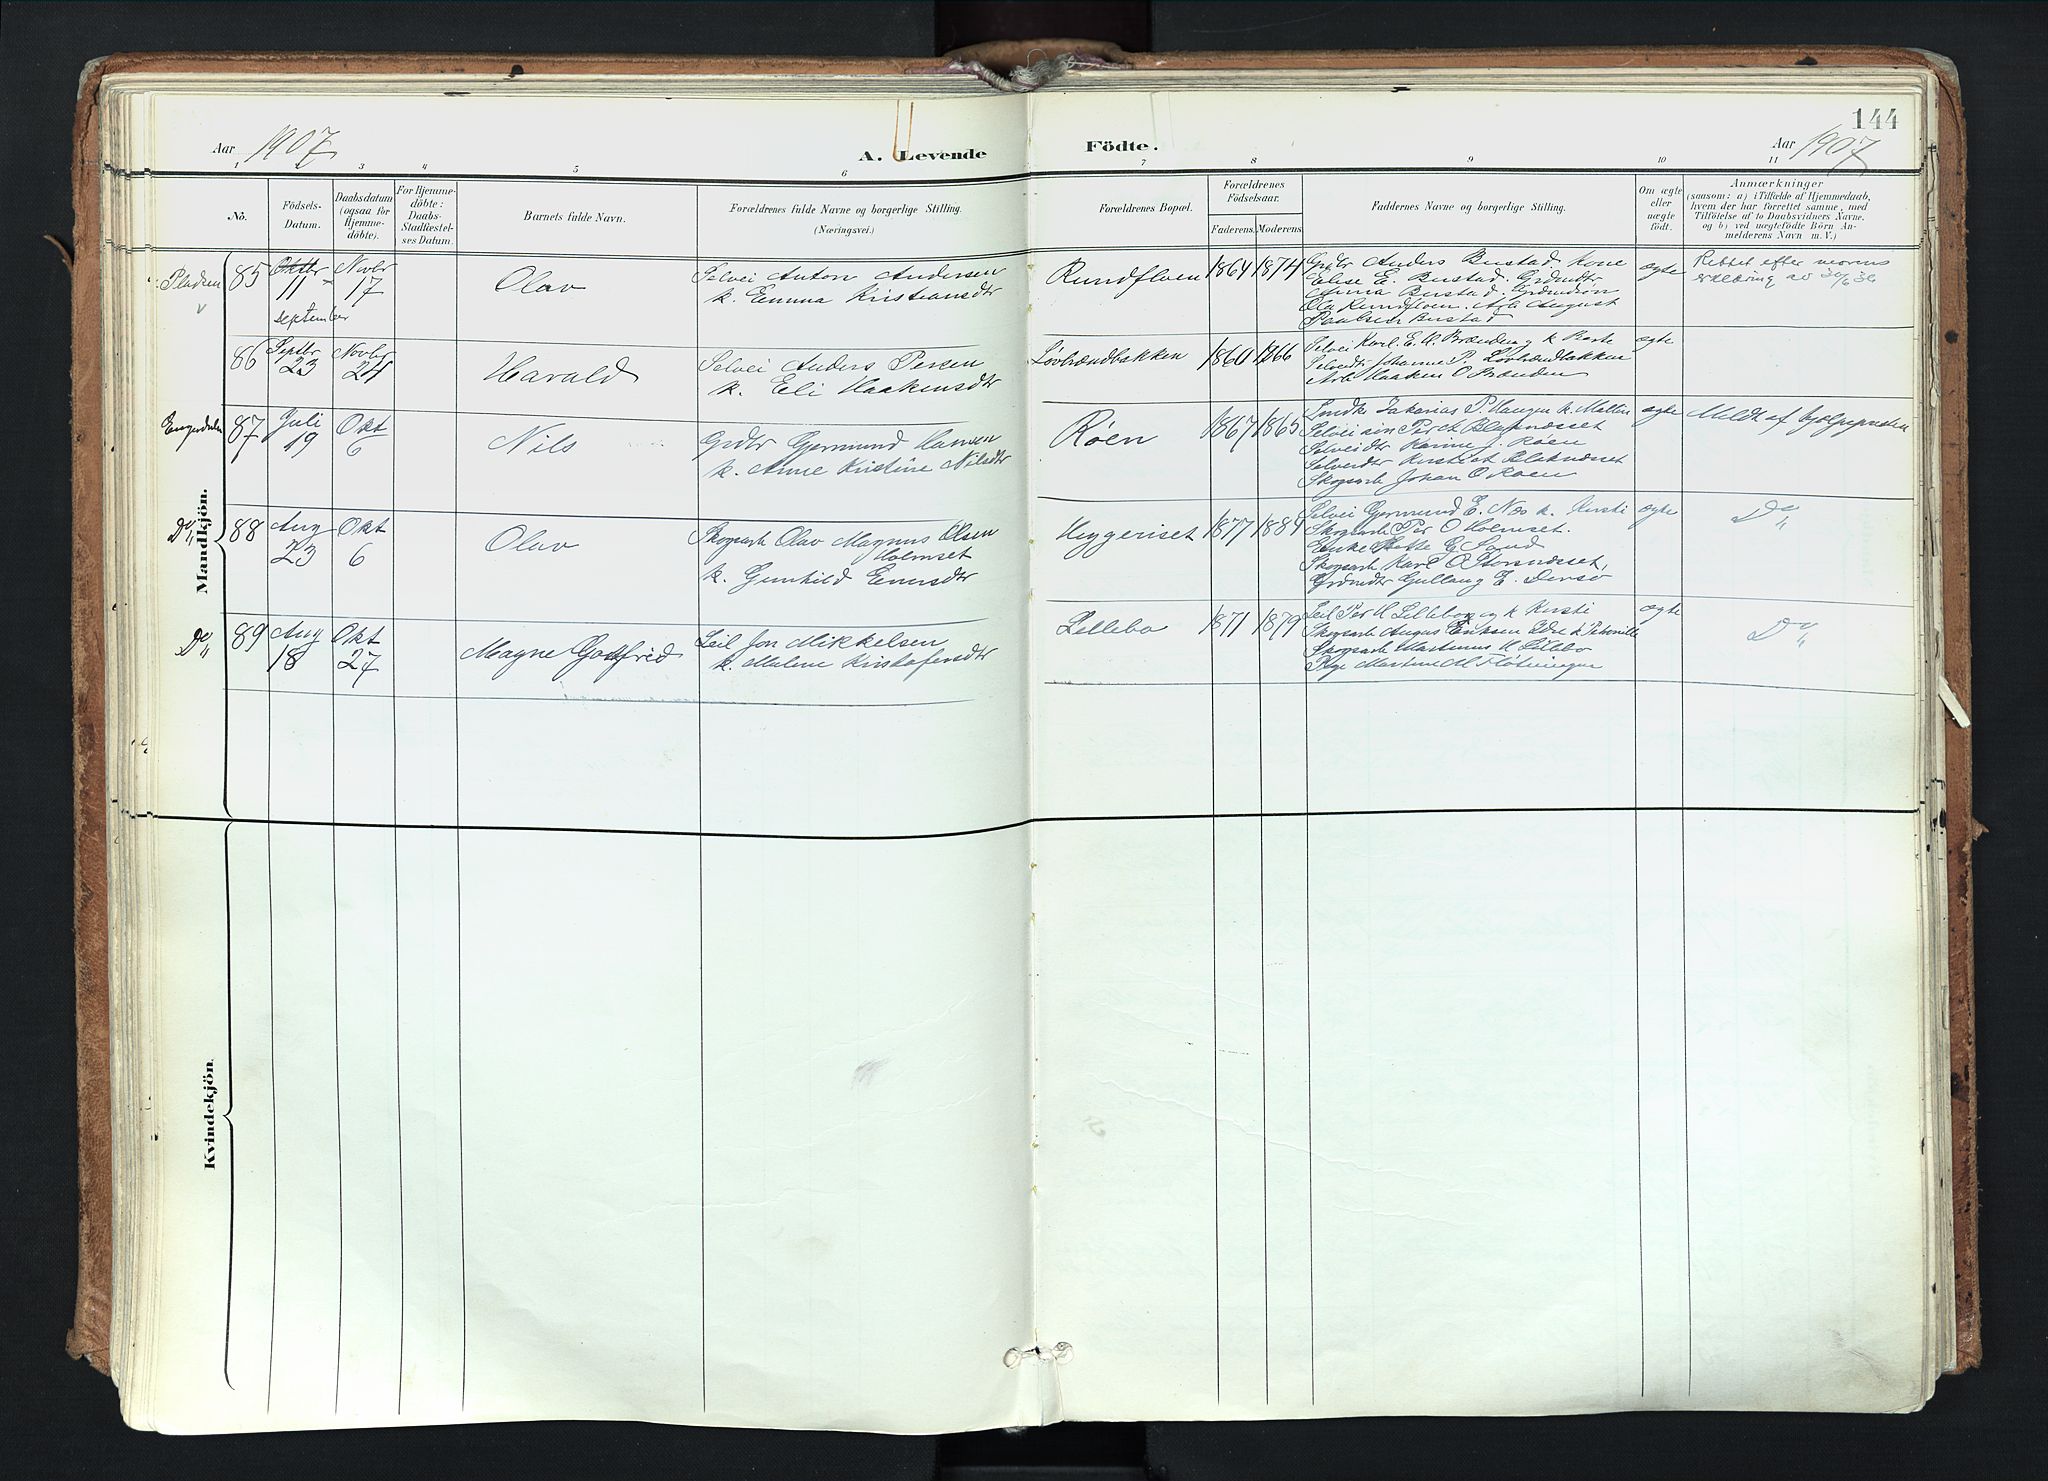 144
Aar 1907
A. Levende
Födte.
Aar 1907
1 2 3 4 5 6 7 8 9 10 11
No.
Födsels-
Datum.
Daabsdatum
(ogsaa for
Hjemme-
döbte).
For Hjemme-
döbte:
Daabs-
Stadfæstel-
ses Datum.
Barnets fulde Navn.
Forældrenes fulde Navne og borgerlige Stilling.
(Næringsvei.)
Forældrenes Bopæl.
Forældrenes
Födselsaar.
Faderens. Moderens.
Faddernes Navne og borgerlige Stilling.
Om ægte
eller
uægte
födt.
Anmærkninger
(saasom: a) i Tilfælde af Hjemmedaab,
hvem der har forrettet samme, med
Tilföielse af to Daabsvidners Navne,
og b) ved uægtefödte Börn An-
melderens Navn m. V.)
Mandkjön.
Pladsen
85
Oktbr
11
September
Novbr
17
Olav
Selvei Anton Andersen
k. Emma Kristiansdtr
Rundfloen
1864
1874
Grdbr Anders Bustad Kone
Elise E. Bustad. Grdmdtr
Anna Bustad. Grdmdsön
Ola Rundfloen. Arb August
Paulsen Bustad
ægte
Rettet efter morens
erklæring av 30/6 36
86
Septbr
23
Novbr
24
Harald
Selvei Anders Persen
k. Eli Haakensdtr
Lövbrændbakken
1860
1866
Selvei Karl E. Brænden
Selveidtr Johanne P. Lövbrændbakken
Arb Haaken O Brænden
ægte
Engerdalen
87
Juli
19
Okt
6
Nils
Grdbr Gjermund Hansen
k. Anne Kristine Nilsdtr
Røen
1867
1865
Zakarias P. Haugen k. Mallin
Selvei sön Per
Selveidtr Karine J. Røen
Selveidtr Kirsti
Skogsarb Johan O Røen
ægte
Meldt af hjælpepresten
Do
88
Aug
23
Okt
6
Olav
Skogsarb Olav Magnus Olsen
Holmset
k. Gunhild Enersdtr
Heggeriset
1877
1889
Selvei Gjermund E. Næs k. Kirsti
Skogsarb Per O Holmset.
Enke
Skogsarb Karl O Storsnæset,
Grdmdtr Gulaug E.
ægte
Do
Do
89
Aug
18
Okt
27
Magne Gotfred
Leil Jon Mikkelsen
k. Malene Kristofersdtr
Lillebo
1871
1879
Leil Per M Lillebo og k Kirsti
Skogsarb August Eriksen Idre k Petronille
Skogsarb Martinus M Lillebo
Pige Martine M Fløtningen
ægte
Do
Kvindekjön.